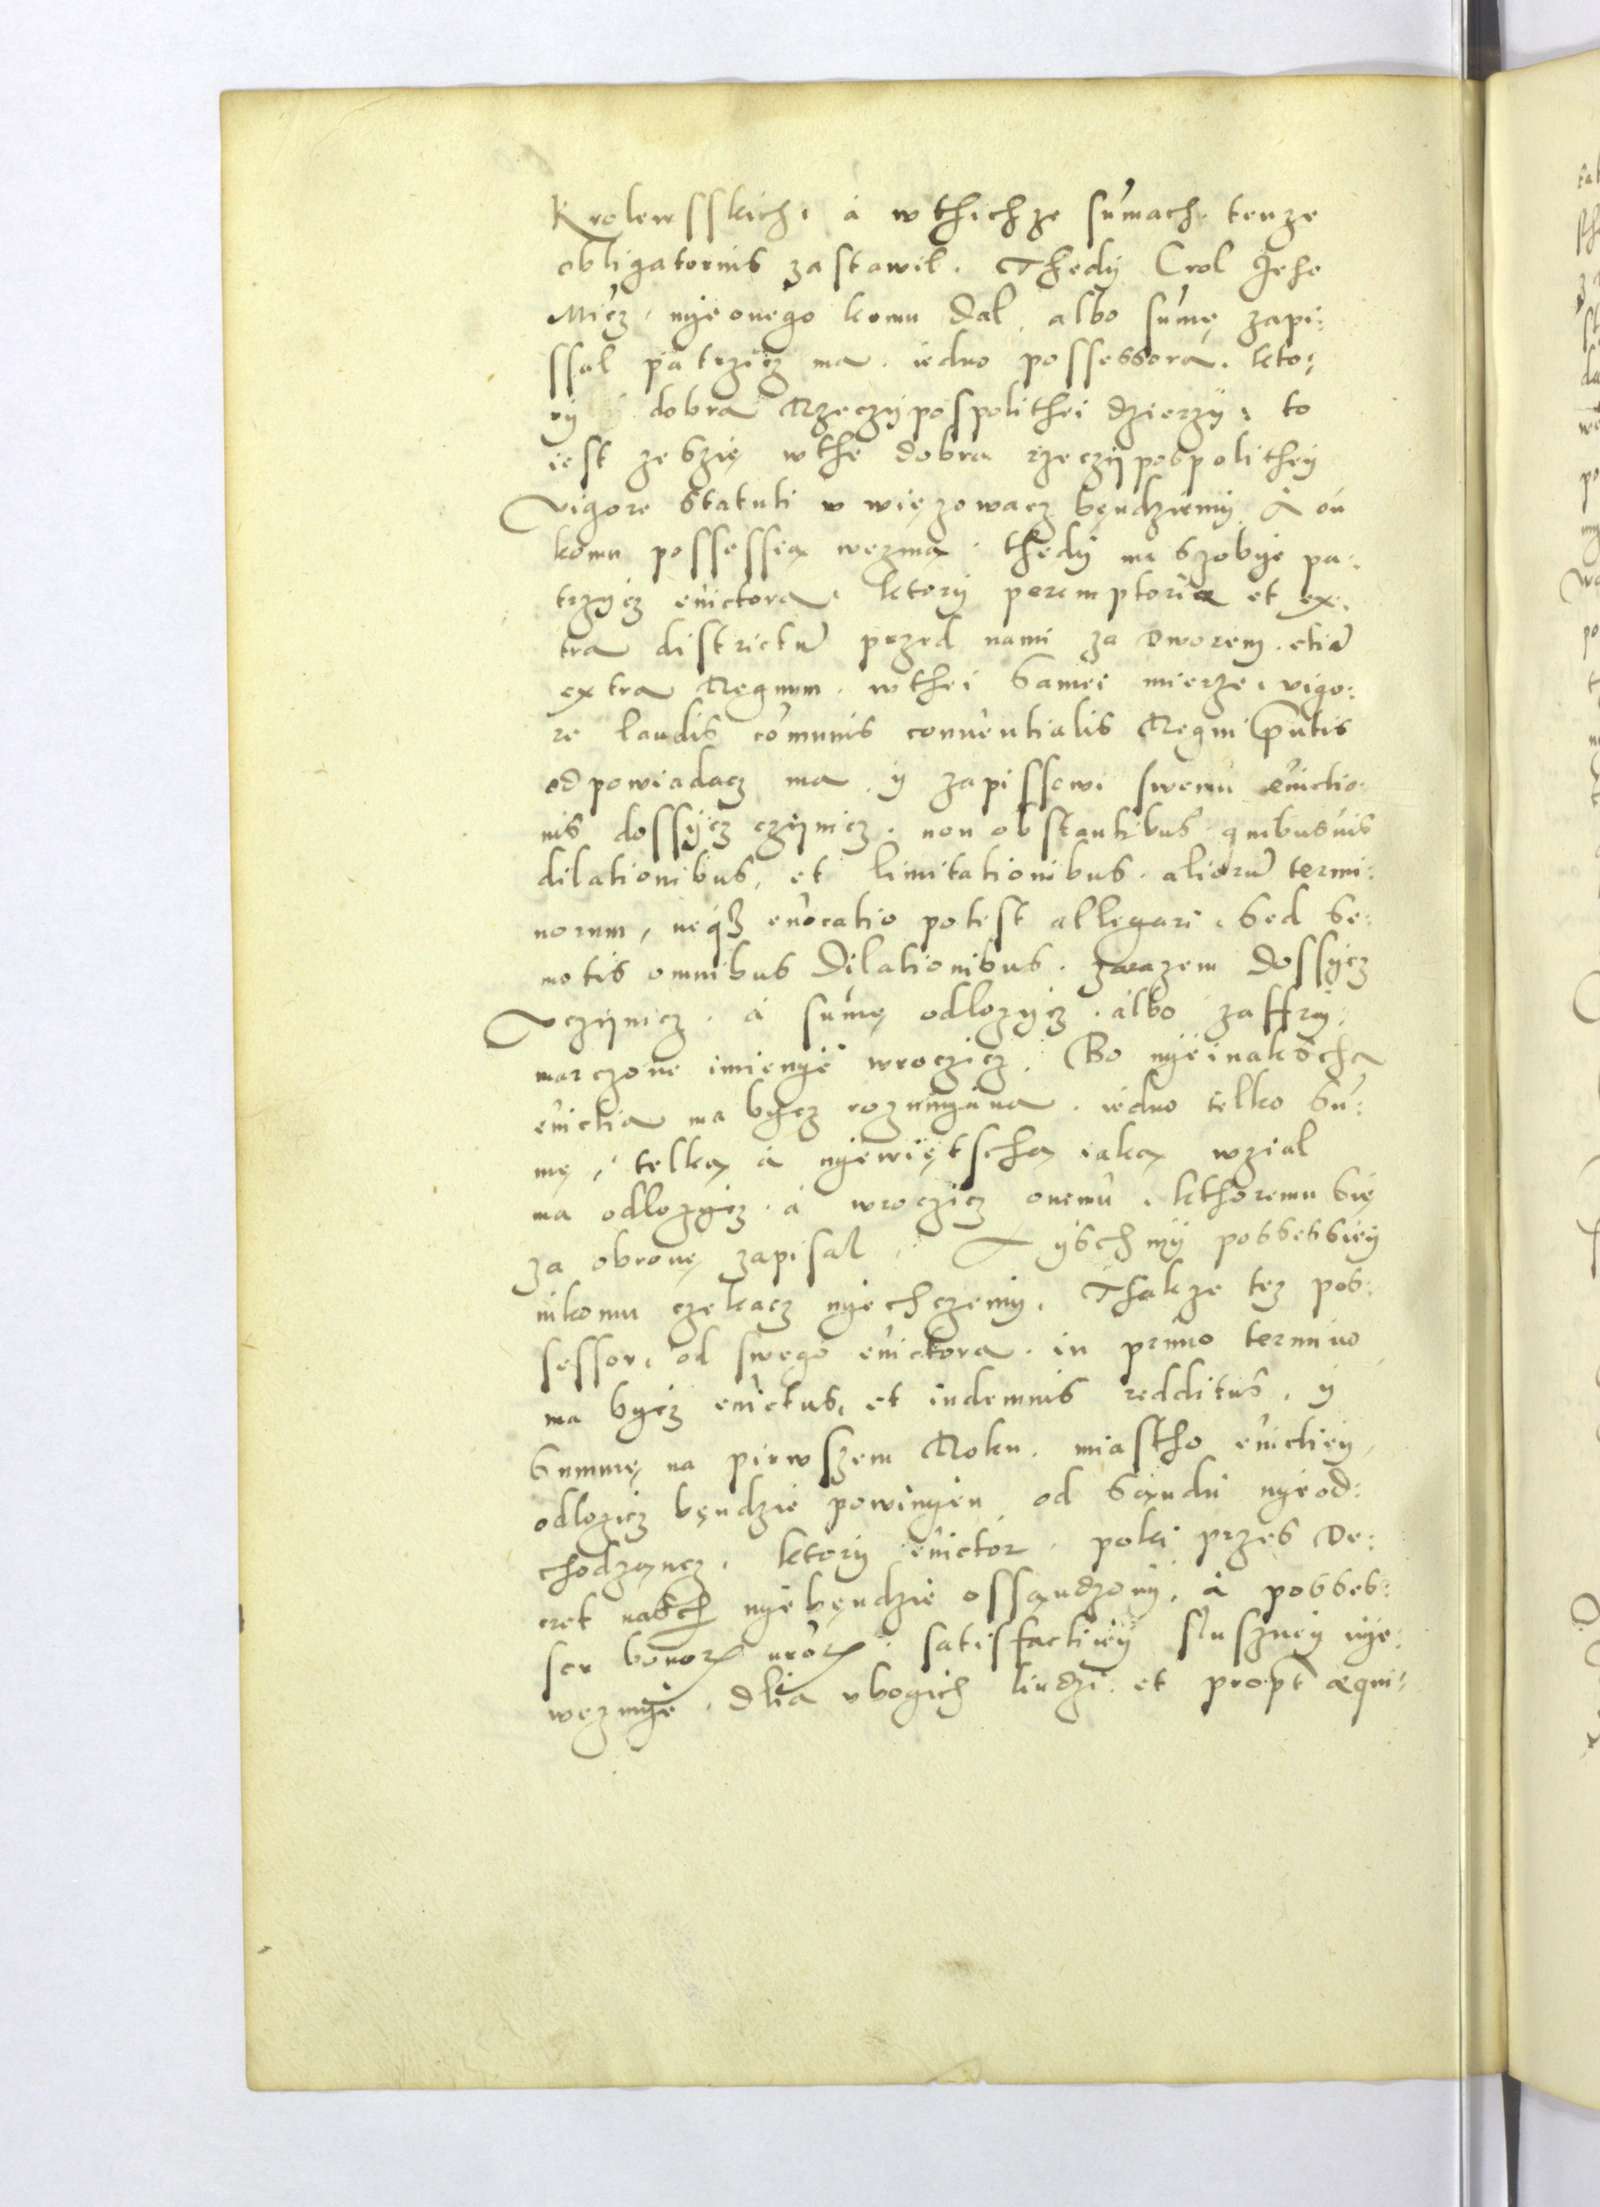 Krolewsskich, a wthichze sumach tenze
obligatorius zastawil. Thedÿ Crol Jeho
Micz, nÿeonego komu dal, albo sumę zapi:
ssal patrzicz ma. iedno possessora, kto:
rÿ dobra Rzeczÿpospolithei dzierzÿ, to
iest ze szię wthe dobra rzeczÿpospolitheÿ
vigore statuti w więzowacz będziemÿ. A on
komu possessią wezmą. thedÿ ma szobÿe pa:
trzÿcz euictora, ktorÿ peremptorie et ex:
tra districtū przed nami za dworem. etiā
extra Regnum. wthei samei mierze, vigo:
re laudis cōmunis conuentialis Regni pntis
odpowiadacz ma, ÿ zapissowi swemu euictio:
nis dossÿcz czÿnicz. non obstantibus quibusuis
dilationibus, et limitationibus. aliorū termi:
norum, neqз euocatio potest allegari, sed se:
motis omnibus Dilationibus. zarazem dossÿcz
Vczÿnicz. a sumę odlozÿcz. albo zaffrÿ:
marczone imienÿe wroczicz. Bo nÿeinakscha
euictia ma bÿcz rozumÿana. iedno telko su:
mę, telką a nÿewiętschą iaką wzial
ma odlozÿcz. a wroczicz onemu, kthoremu się
za obronę zapisal. A ÿschmÿ possessieÿ
nikomu czekacz nÿechczemÿ. Thakze tez pos:
sessor, od swego euictora. in primo termino
ma bÿcz euictus, et indemnis redditus, ÿ
summę na pirwszem Roku. miastho euictieÿ,
odlozicz będzie powinÿen od sąndu nÿeod:
chodząncz, ktorÿ euictor. poki przes De:
cret nasch nÿebęndzie ossąndzonÿ, a posses:
sor bonorꝝ nrorꝝ. satisfactieÿ slusznÿ nÿe:
wezmÿe. dlia vbogich liudzi et propt aequi: